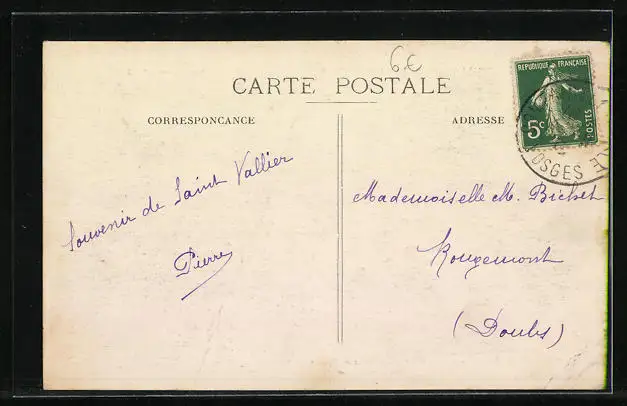 6€
CARTE POSTALE
CORRESPONCANCE
ADRESSE
REPUBLIQUE FRANÇAISE
5c
POSTES
VOSGES
Souvenir de Saint Vallier
Pierre
Mademoiselle M. Bichet
Rougemont
(Doubs)